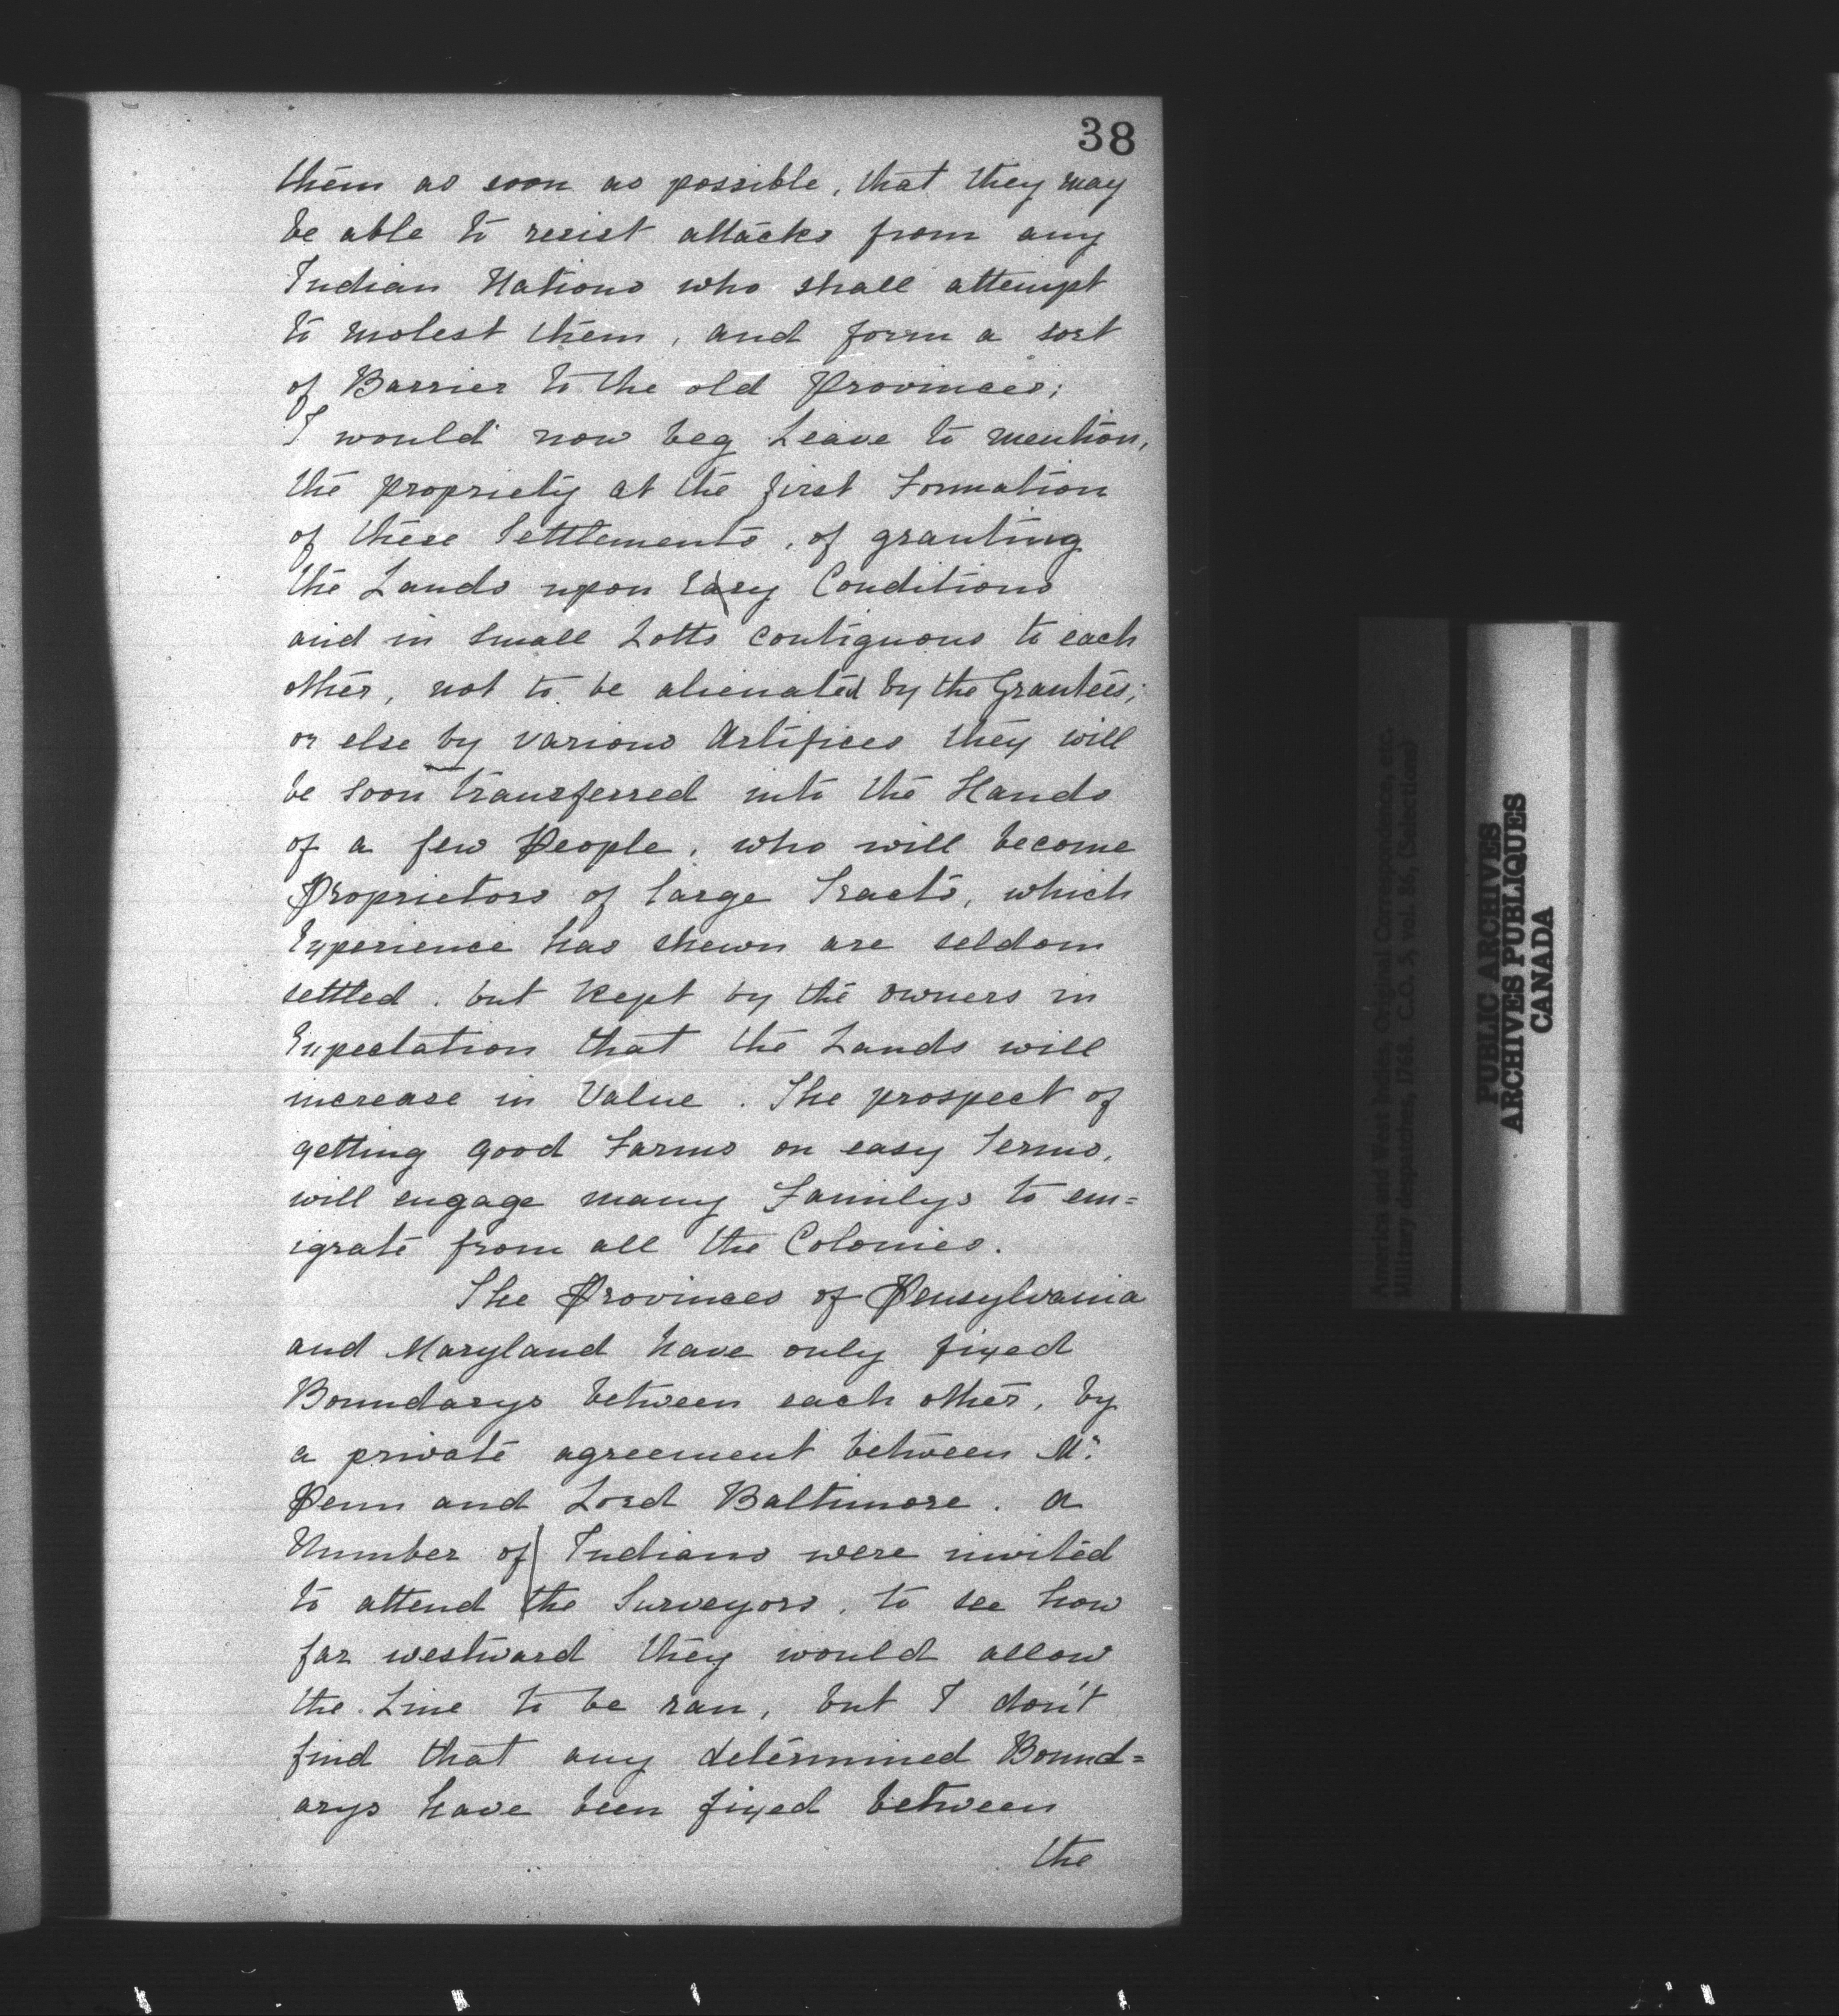 38
them as soon as possible, that they may
be able to resist attacks from any
Indian Nations who shall attempt
to molest them, and form a sort
of Barrier to the old Provinces;
I would now beg Leave to mention,
the propriety at the first Formation
of these Settlements, of granting
the Lands upon Easy Conditions
and in small Lotts contiguous to each
other, not to be alienated by the Grantees;
or else by various Artifices they will
be soon transferred into the Hands
of a few People, who will become
Proprietors of large Tracts, which
Experience has shewn are seldom
settled, but kept by the owners in
Expectation that the Lands will
increase in Value. The prospect of
getting good Farms on easy Terms,
will engage many Familys to em=
igrate from all the Colonies.
The Provinces of Pensylvania
and Maryland have only fixed
Boundarys between each other, by
a private agreement between Mr.
Penn and Lord Baltimore. A
Number of Indians were invited
to attend the Surveyors, to see how
far westward they would allow
the Line to be ran, but I don't
find that any determined Bound=
arys have been fixed between
the
America and West Indies, Original Correspondence, etc.
Military despatches, 1768. C.O. 5, vol. 86, (Selections)
PUBLIC ARCHIVES
ARCHIVES PUBLIQUES
CANADA